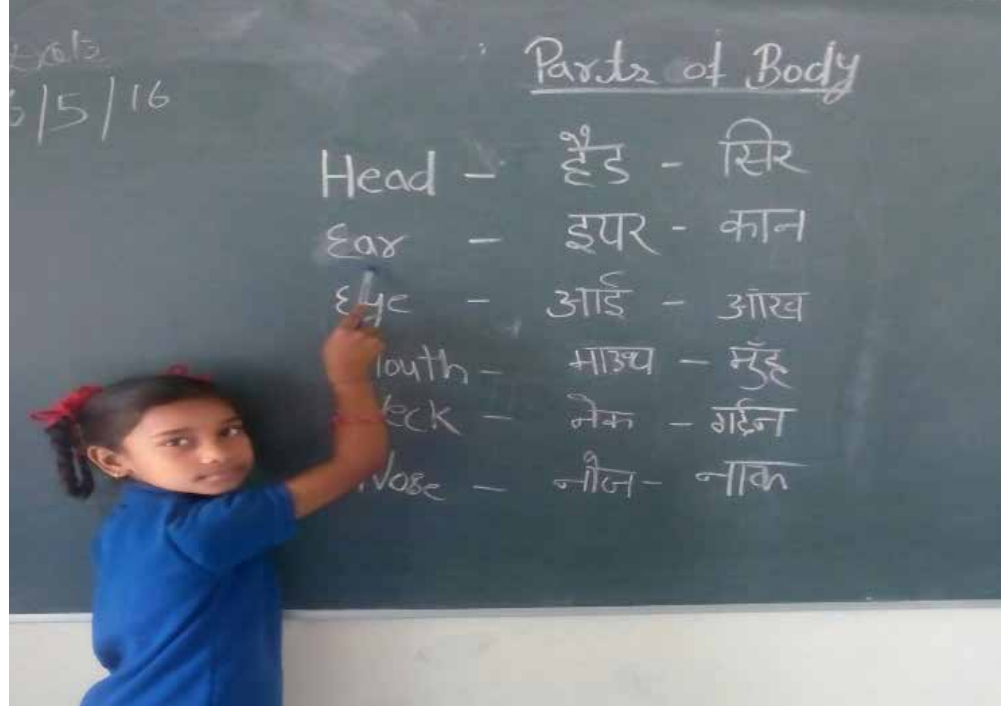 Date
5/16
Parts of Body
Head - हैड - सिर
Ear - इयर - कान
Eye - आई - आँख
outh - माउथ - मुँह
eck - नेक - गर्दन
Nose - नौज - नाक